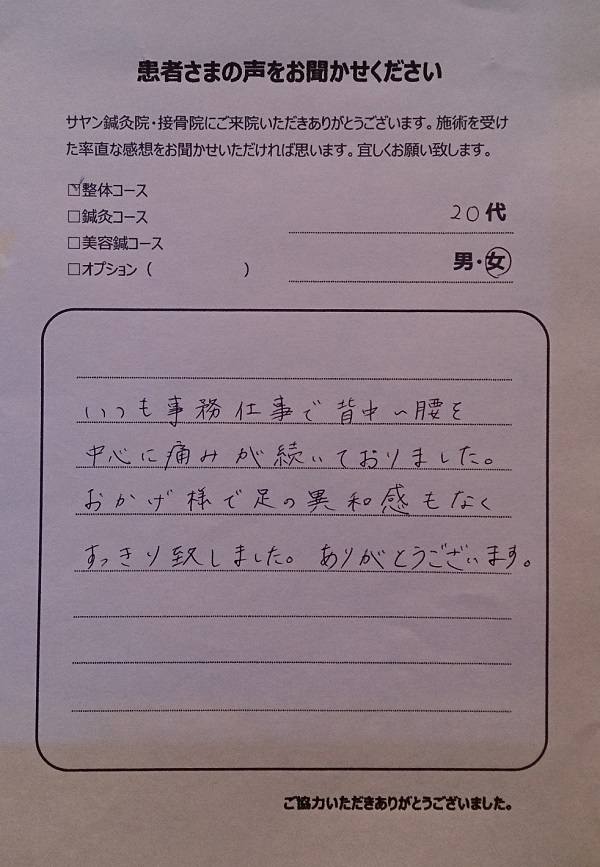 患者さまの声をお聞かせください
サヤン鍼灸院・接骨院にご来院いただきありがとうございます。施術を受け
た率直な感想をお聞かせいただければ思います。宜しくお願い致します。
☑整体コース
□鍼灸コース
20代
□美容鍼コース
男・女
□オプション（　　　　　　）
いつも事務仕事で背中〜腰を
中心に痛みが続いておりました。
おかげ様で足の異和感もなく
すっきり致しました。ありがとうございます。
ご協力いただきありがとうございました。